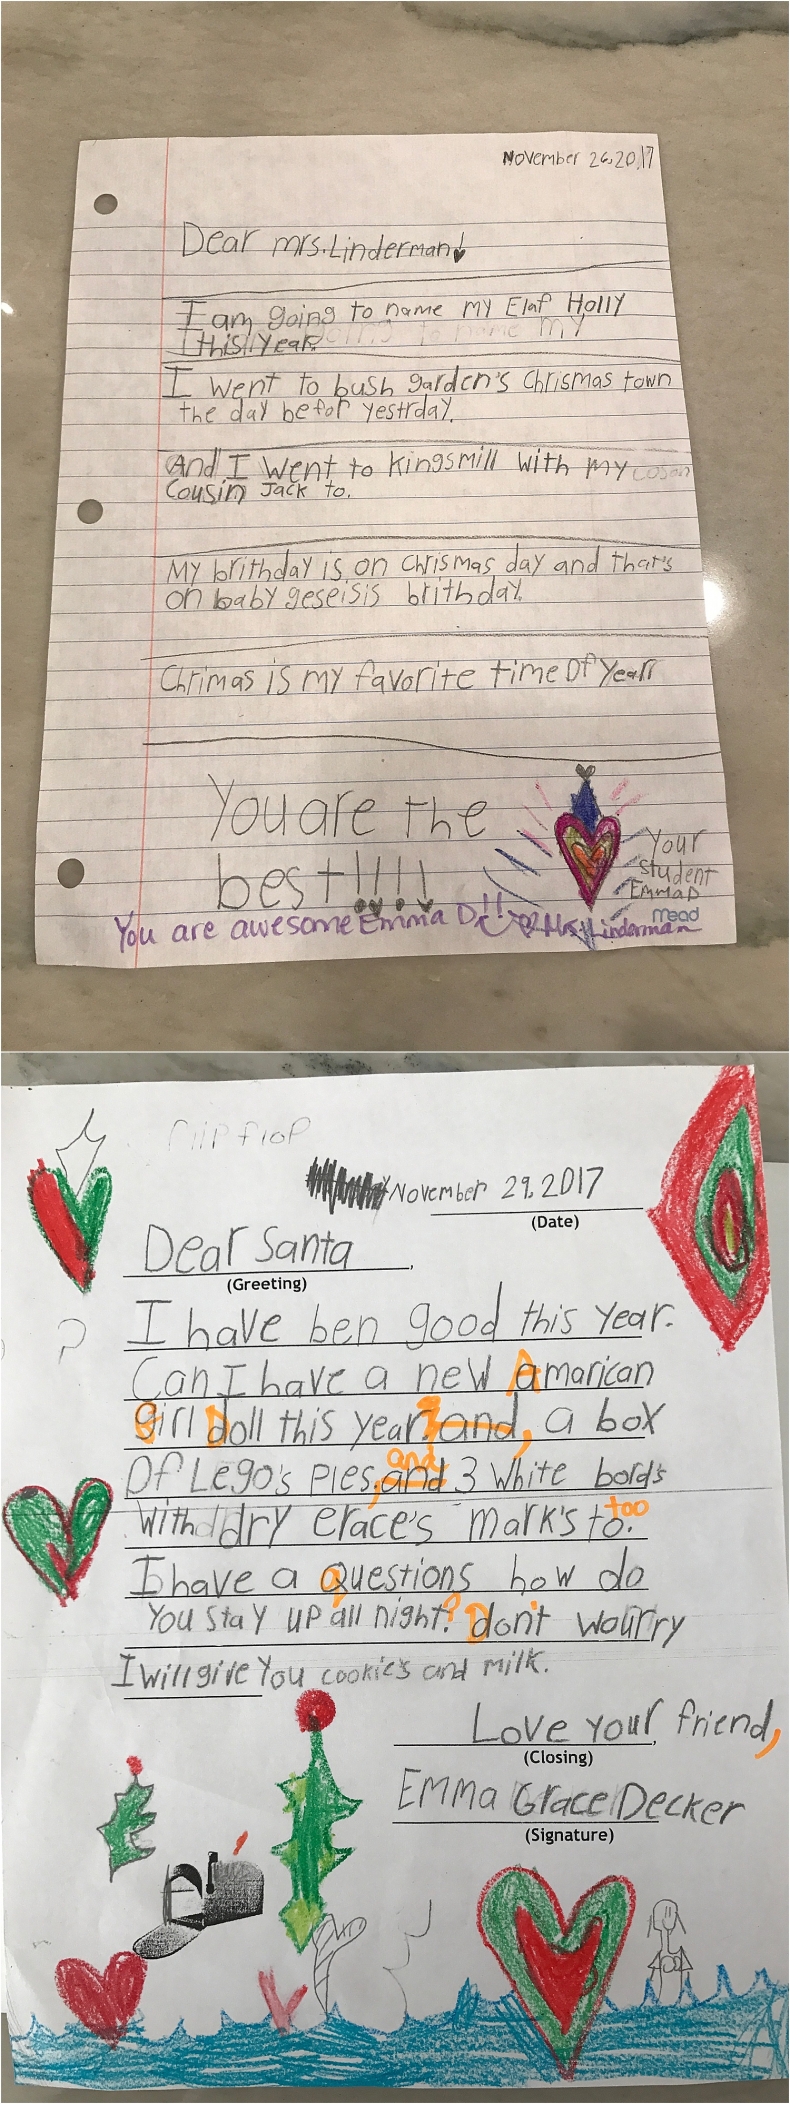 November 26, 2017
Dear mrs. Linderman!
I am going to name my Elaf Holly
this year.
I went to bush garden's Chrismas town
the day befor yestrday.
And I went to Kingsmill with my
Cousin Jack to.
My brithday is on Chrismas day and that's
on baby geseisis brithday.
Chrimas is my favorite time Of year
You are the
best!!!!
Your
student
Emma D
mead
You are awesome Emma D!! Mrs. Linderman
flip flop
November 29, 2017
(Date)
Dear Santa,
(Greeting)
I have ben good this year.
Can I have a new Amarican
Girl Doll this year. and, a box
Of Lego's pies, and and 3 white bord's
With dry erace's mark's to. too
I have a questions how do
You stay up all night? Don't wourry
I will give You cookie's and milk.
Love your friend,
(Closing)
Emma Grace Decker
(Signature)